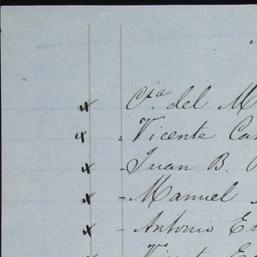 Cia. del M
- Vicente Ca
- Juan B.
- Manuel
- Antonio E
Vicente E